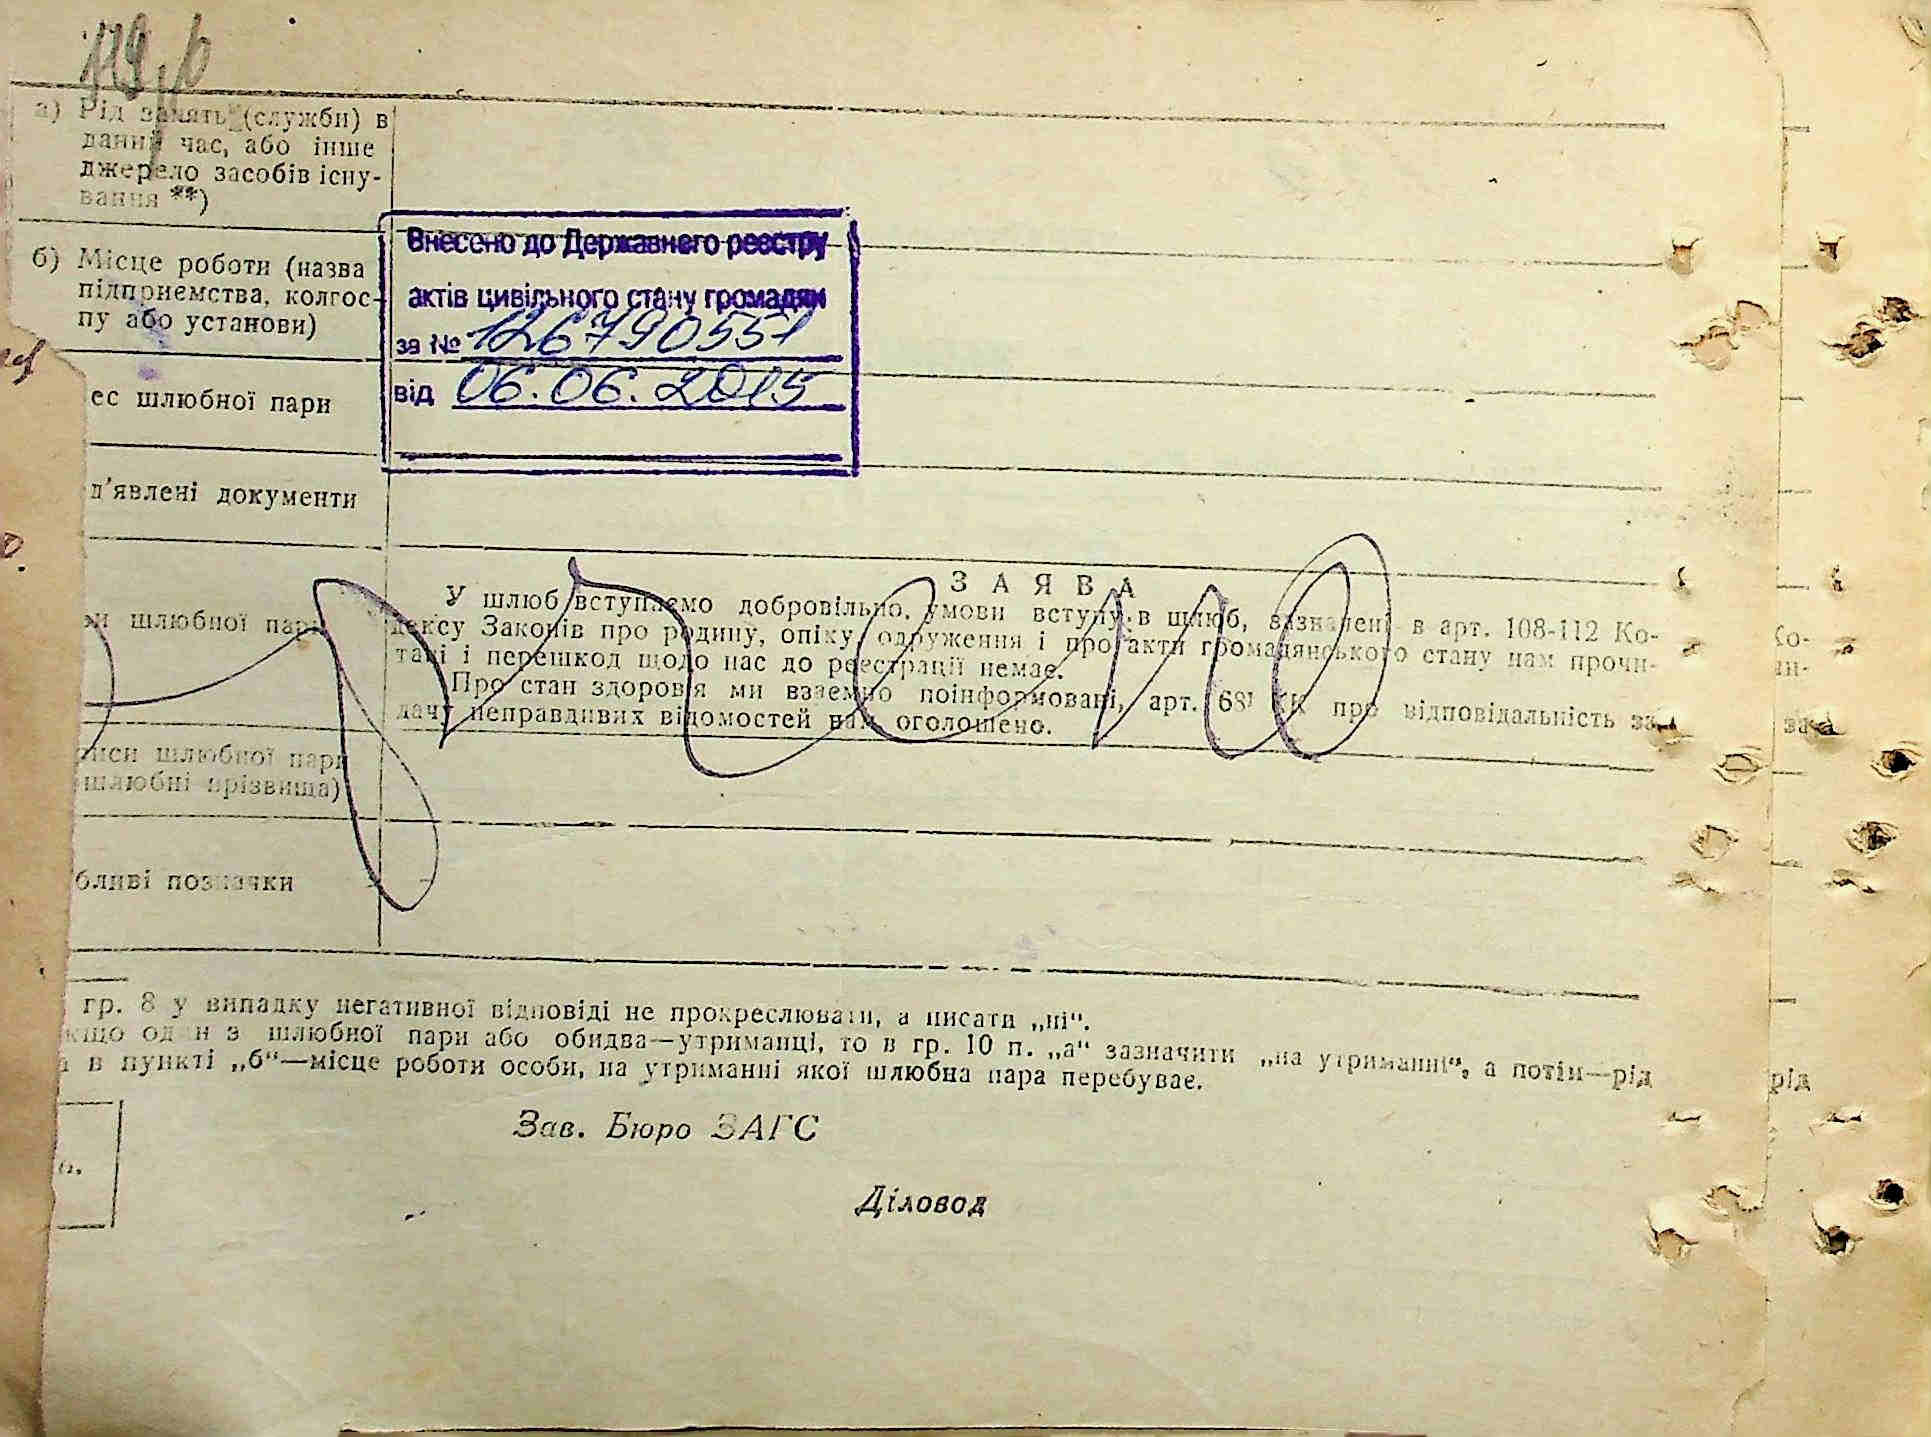 а) Рід занять (служби) в
даний час, або інше
джерело засобів існу-
вання **)
Внесено до Державнего реестру
б) Місце роботи (назва
підприємства, колгос-
пу або установи)
актів цивільного стану громадян
за № 126790551
від 06.06.2015
ес шлюбної пари
д'явлені документи
ЗАЯВА
У шлюб вступаємо добровільно, умови вступу в шлюб, зазначені в арт. 108-112 Ко-
дексу Законів про родину, опіку, одруження і про акти громадянського стану нам прочи-
тані і перешкод щодо нас до реєстрації немає.
Про стан здоров'я ми взаємно поінформовані, арт. 68¹ КК про відповідальність за
дачу неправдивих відомостей нам оголошено.
шлюбної пари
писи шлюбної пари
шлюбні прізвища)
бливі позначки
гр. 8 у випадку негативної відповіді не прокреслювати, а писати „ні“.
кщо один з шлюбної пари або обидва—утриманці, то в гр. 10 п. „а“ зазначити „на утриманні“, а потім—рід
в пункті „б“—місце роботи особи, на утриманні якої шлюбна пара перебуває.
Зав. Бюро ЗАГС
Діловод
Ко-
чи-
за
рід